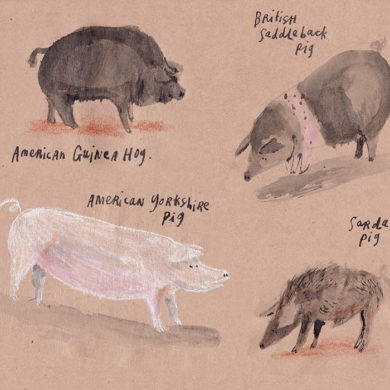 British
Saddleback
pig
American Guinea Hog.
American Yorkshire
pig
Sarda
pig